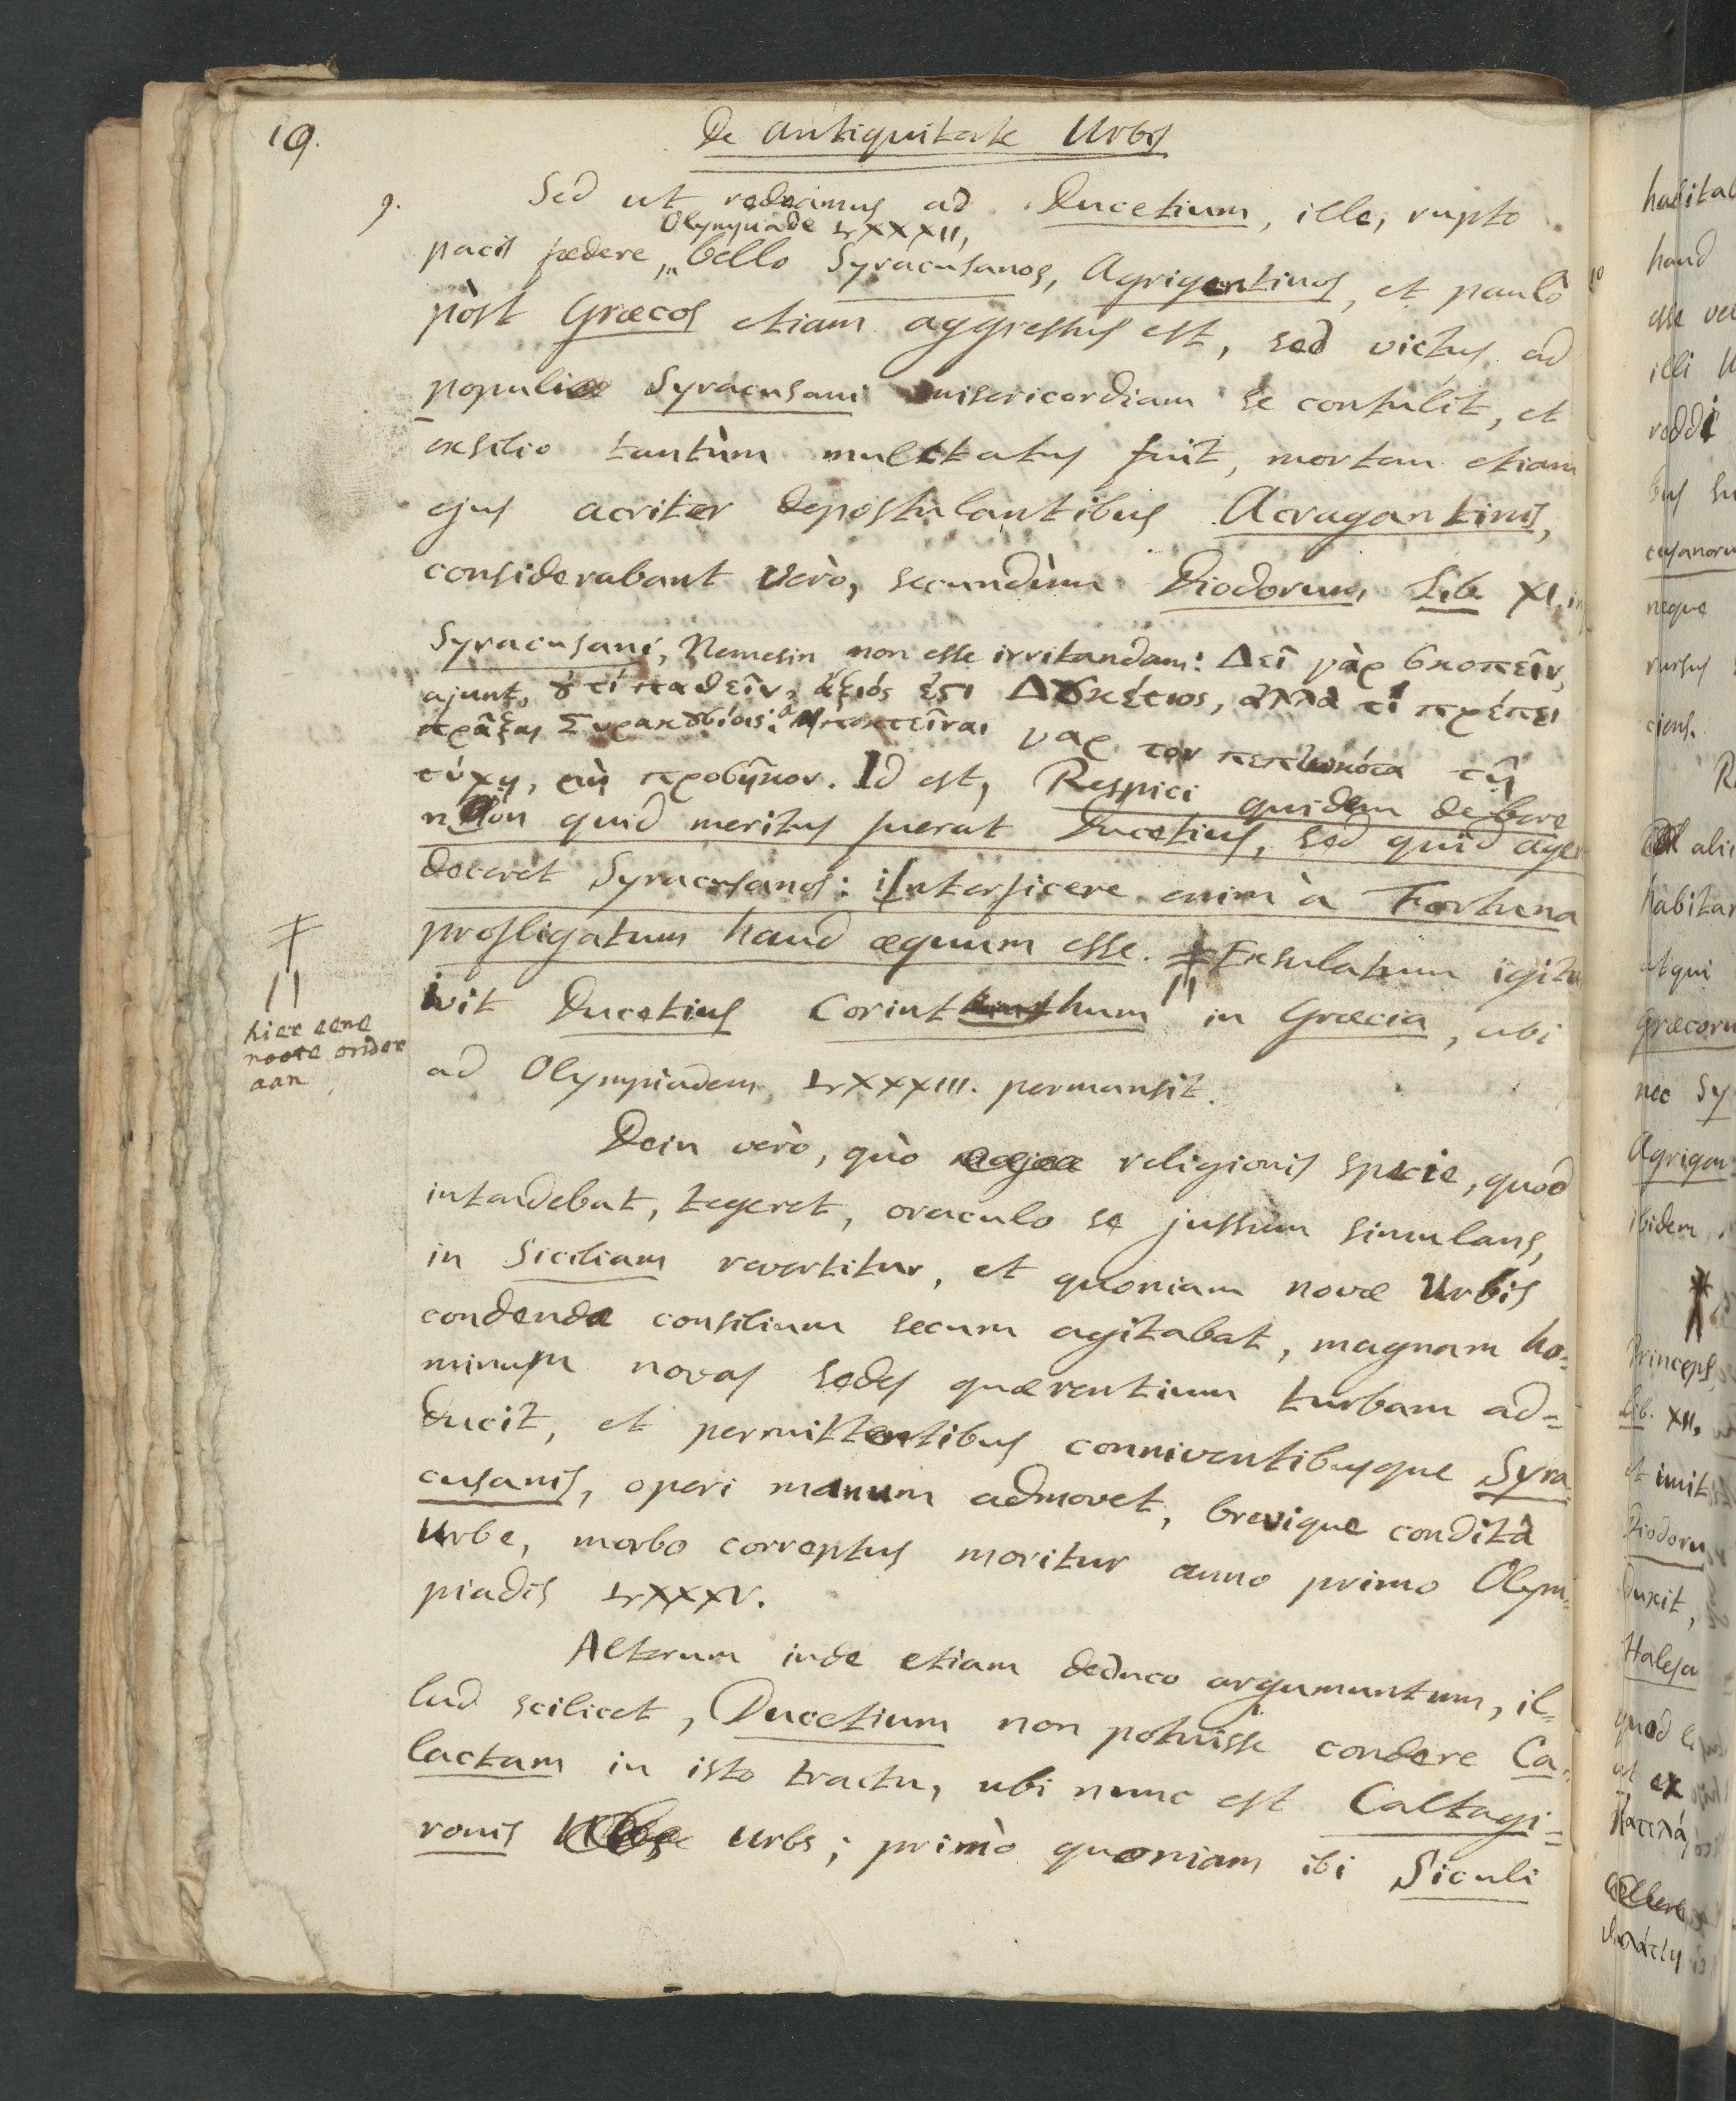 19.
De antiquitate Urbis
9.
Sed ut redeamus ad Ducetium, ille, rupto
Olympiade LXXXII,
pacis fœdere, bello Syracusanos, Agrigentinos, et paulò
pòst Græcos etiam aggressus est, sed victus ad
populi Syracusani misericordiam se contulit, et
exsilio tantùm mulctatus fuit, mortem etiam
ejus acriter depostulantibus Acragantinis,
considerabant verò, secundùm Diodorum, Lib. XI,
Syracusani, Nemesin non esse irritandam: Δεῖ γὰρ σκοπεῖν,
ajunt, ȣ τί παθεῖν ἄξιός ἐϛι Δȣκέτιος, ἀλλὰ τί πρέπει
πρᾶξαι Συρακȣσίοις: ἀποκτεῖναι γαρ τον πεπτωκότα τῇ
τύχῃ, μὴ προσῆκον. Id est, Respici quidem debere
non quid meritus fuerat Ducetius, sed quid agere
deceret Syracusanos: interficere enim à Fortuna
profligatum haud æquum esse. Exsulatum igitur
ivit Ducetius Corinthum in Græcia, ubi
ad Olympiadem LXXXIII. permansit.
hier eene
noote onder
aan
Dein verò, quò religionis specie, quod
intendebat, tegeret, oraculo se jussum simulans,
in Siciliam revertitur, et quoniam novæ Urbis
condendæ consilium secum agitabat, magnam ho=
minum novas sedes quærentium turbam ad=
ducit, et permittentibus conniventibusque Syra
cusanis, operi manum admovet, brevique conditâ
Urbe, morbo correptus moritur anno primo Olym=
piadis LXXXV.
Alterum inde etiam deduco argumentum, il=
lud scilicet, Ducetium non potuisse condere Ca=
lactam in isto tractu, ubi nunc est Caltagi=
ronis Urbs; primò quoniam ibi Siculi
habitab
haud
esse ve
illi
reddi
bus su
cusanoru
neque
rursus
ciens.
ali
habitar
atqui
Græcoru
nec Sy
Agrigen
ibidem
Princeps
Lib. XII,
et init
Diodoru
duxit,
Halesa
quod
ut ex